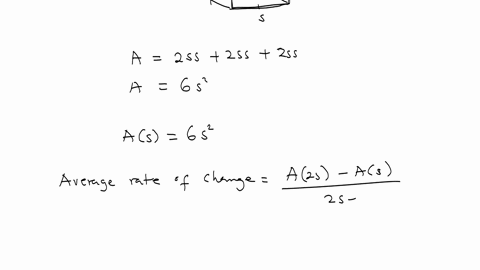 s
A = 2ss + 2ss + 2ss
A = 6s²
A(s) = 6s²
Average rate of change = A(2s) - A(s)
2s -